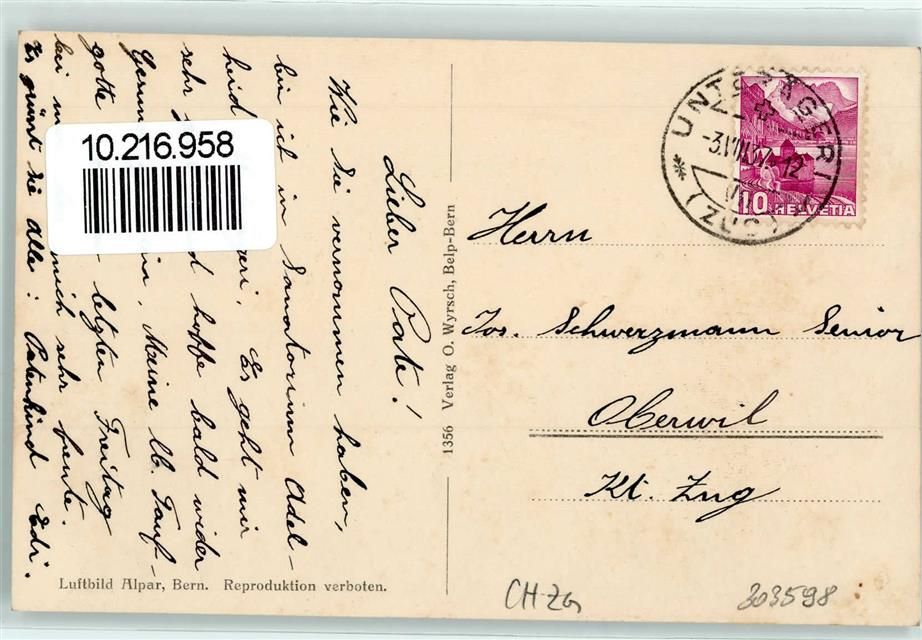 Lieber Pate!
Wie Sie vernommen haben,
bin ich in Sanatorium Adel-
heid eri. Es geht mir
sehr d hoffe bald wider
Meine lb. Tauf-
gotte letzten Freitag
bei mich sehr freute.
Es grüsst Sie Alle: Patenkind Edi.
10.216.958
Luftbild Alpar, Bern. Reproduktion verboten.
1356 Verlag O. Wyrsch, Belp-Bern
UNTERÄGERI
-3.VIII.37.-12
(ZUG)
10 HELVETIA
Herrn
Jos. Schwerzmann Senior
Oberwil
Kt. Zug
CH-Zg
303598